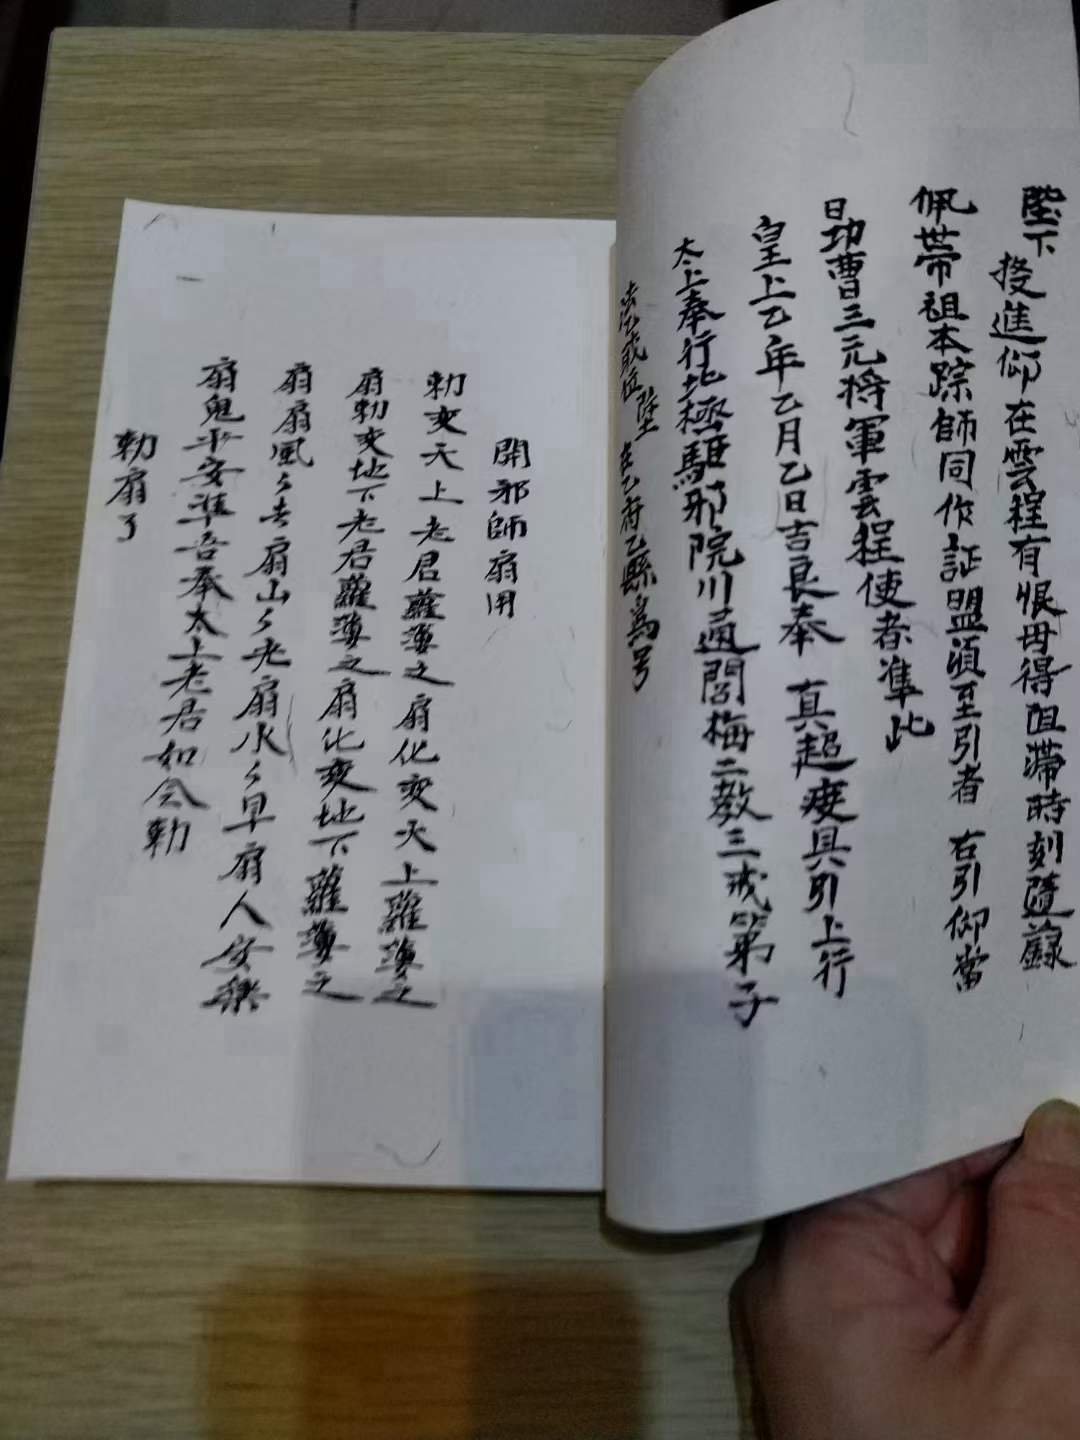 陛下
投進仰在雲程有恨毋得阻滯時刻隨錄
佩帶祖本踪師同作証盟須至引者 右引仰當
日功曹三元将軍雲程使者準此
皇上乙年乙月乙日吉良奉 真超度具引上行
太上奉行北極驅邪院川通閭梅二教三戒第子
法乙職位 陞 在乙府乙縣為号
開邪師扇用
勅变天上老君蘿薄之扇化变天上蘿薄之
扇勅变地下老君蘿薄之扇化变地下蘿薄之
扇扇風々去扇山々老扇水々早扇人安樂
扇鬼平安準吾奉太上老君如令勅
勅扇了